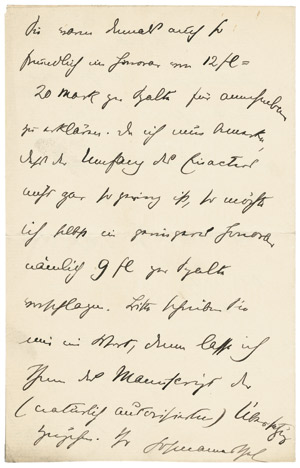 Sie waren damals auch so
freundlich ein Honorar von 12 fl =
20 Mark per Spalte für annehmbar
zu erklären. Da ich nun bemerke,
daß der Umfang des Einacters
nicht gar so gering ist, so möchte
ich selbst ein geringeres Honorar
nämlich 9 fl per Spalte
vorschlagen. Bitte schreiben Sie
mir ein Wort, dann lasse ich
Ihnen das Manuscript der
(natürlich autorisierten) Übersetzg
zugehen. Ihr Hofmannsthal